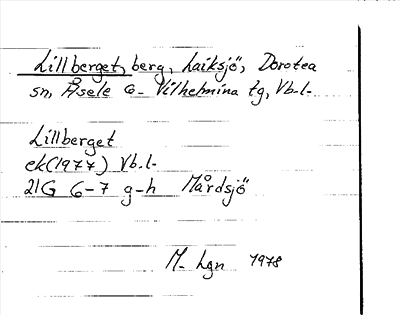 Lillberget, berg, Laiksjö, Dorotea
sn, Åsele o- Vilhelmina tg, Vb.l.
Lillberget
ek(1977) Vb.l.
21G 6-7 g-h Mårdsjö
M. Lgn 1978